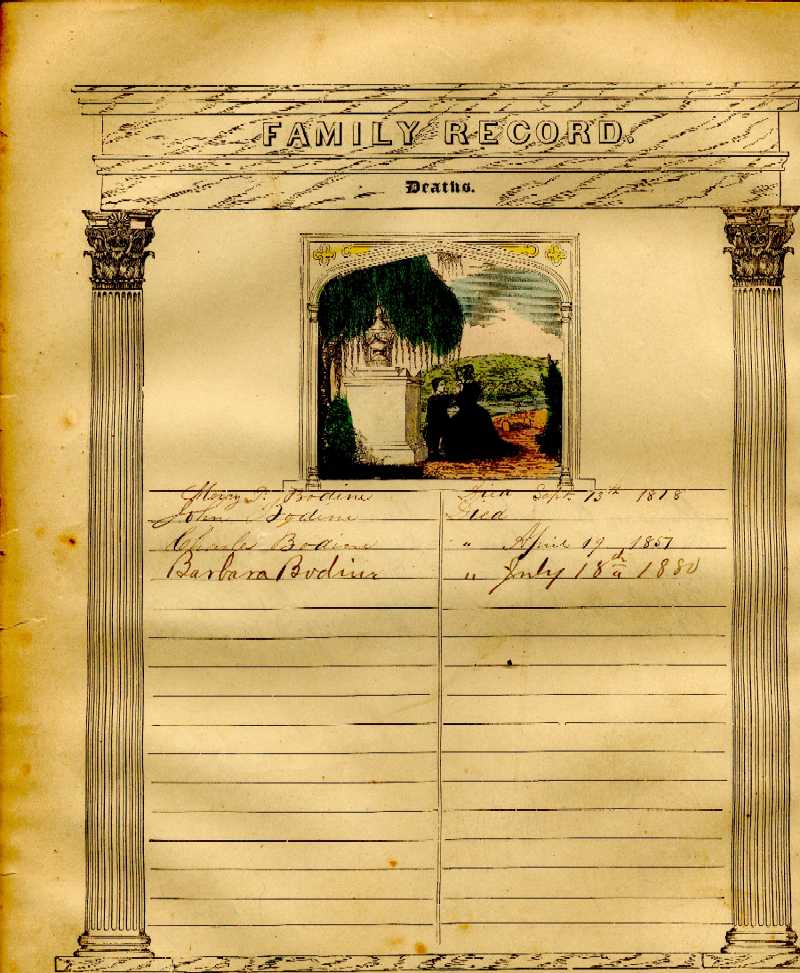 FAMILY RECORD.
Deaths.
P. Bodine Died Sept. 13th 1878
John Bodine Died
Charles Bodine " April 19 1857
Barbara Bodine " July 18 1880